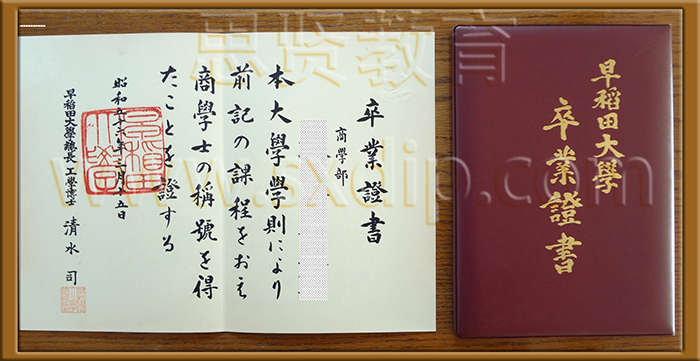 卒業證書
商學部
本大學學則により
前記の課程をおえ
商學士の稱號を得
たことを證する
昭和五十六年三月十五日
早稲田大學總長 工學博士 清水 司
早稲田大學
卒業證書
思贤教育
www.sxdip.com